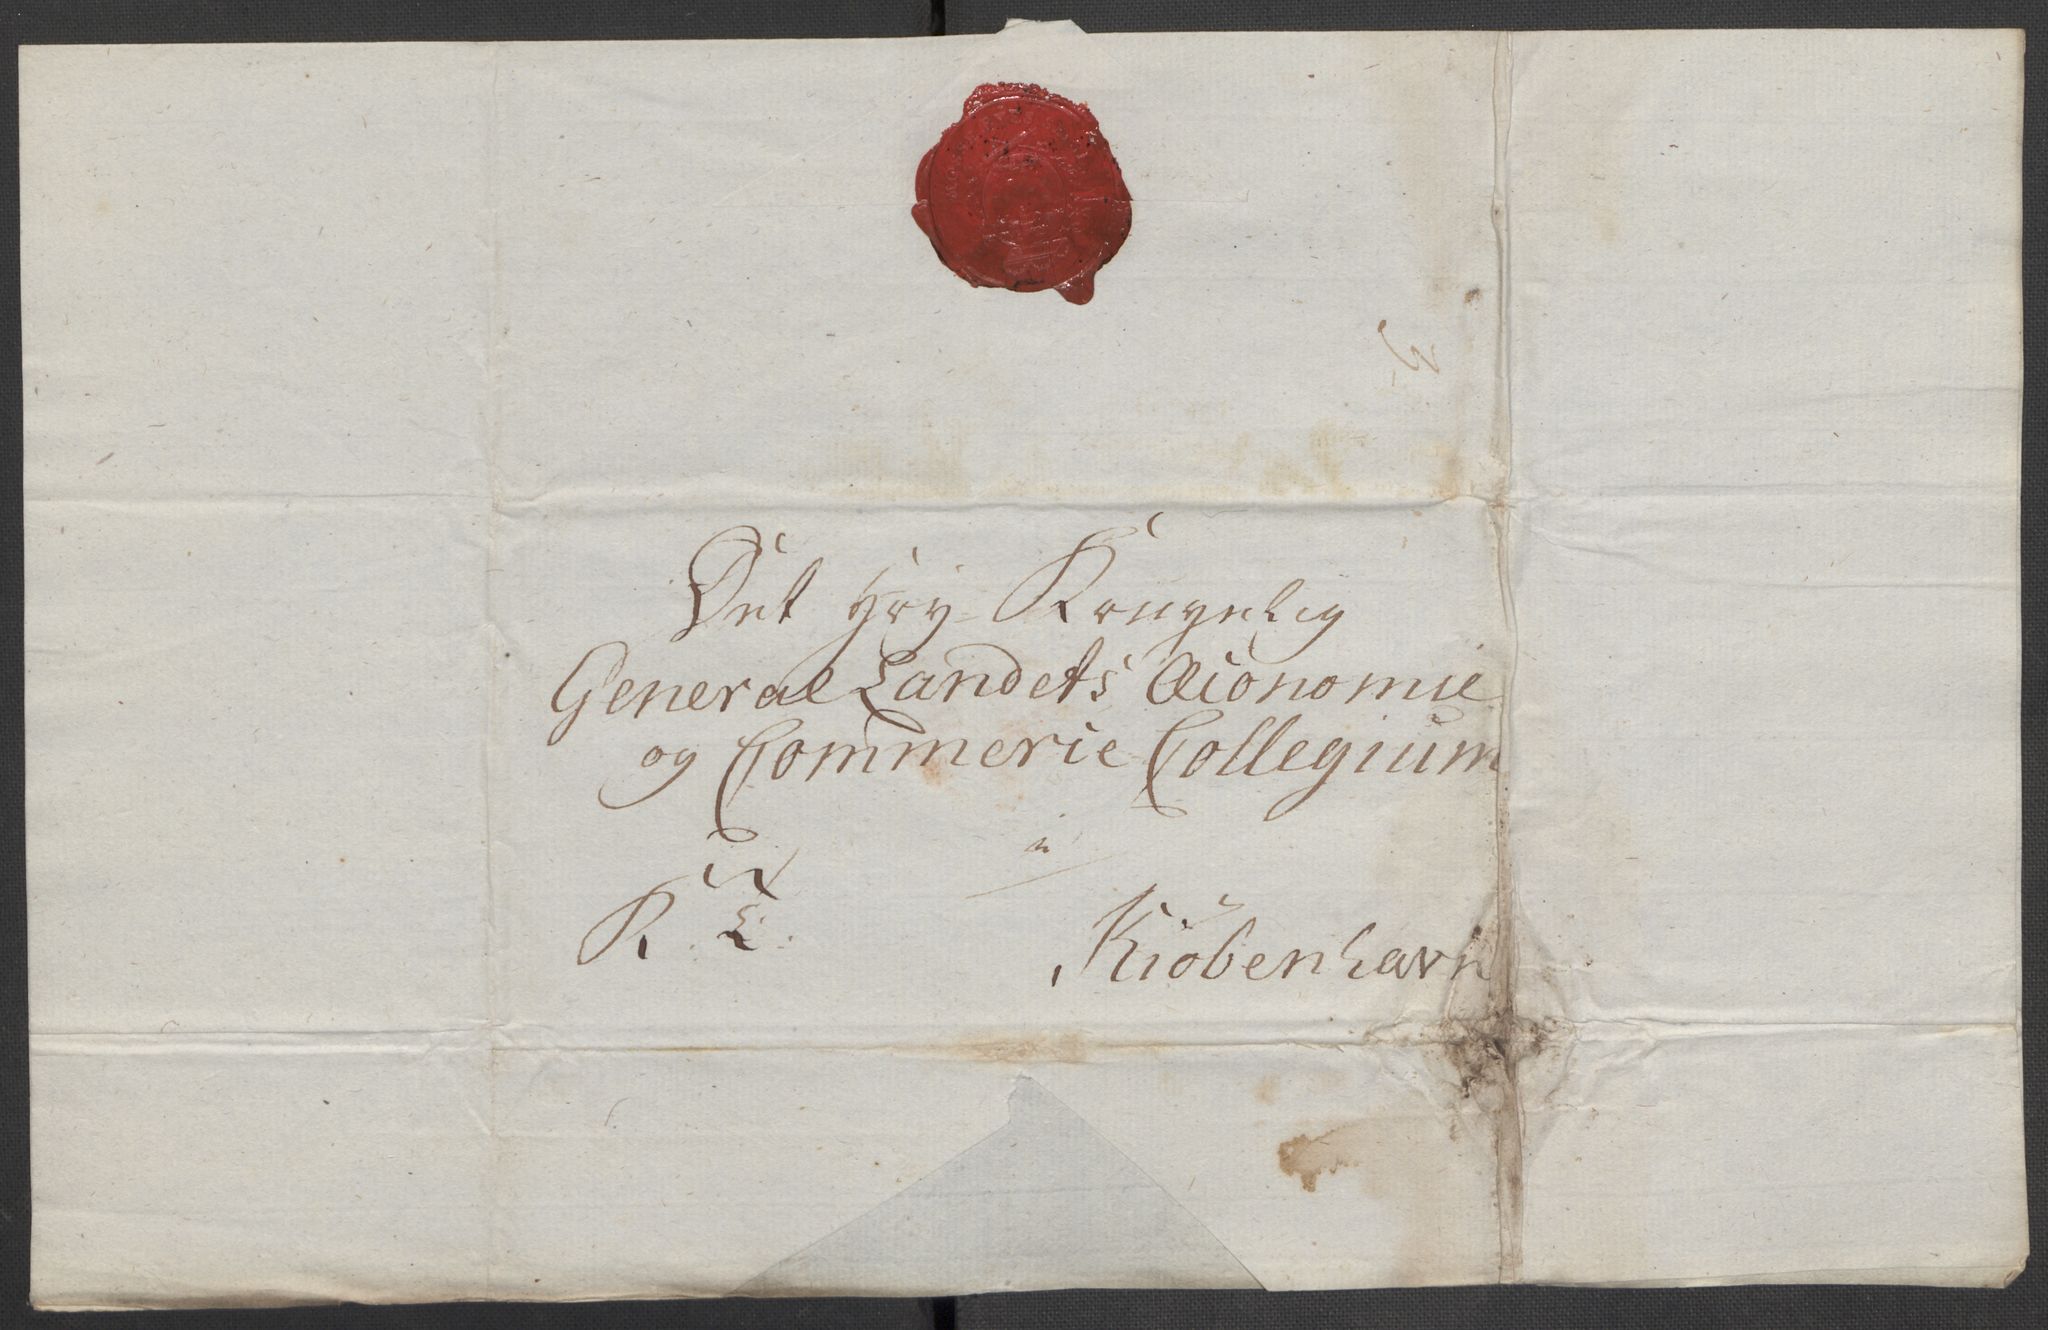 Det Høy Kongelig
General Landets Œconomie
og Commercie Collegium
i
K. T.
Kiöbenhavn